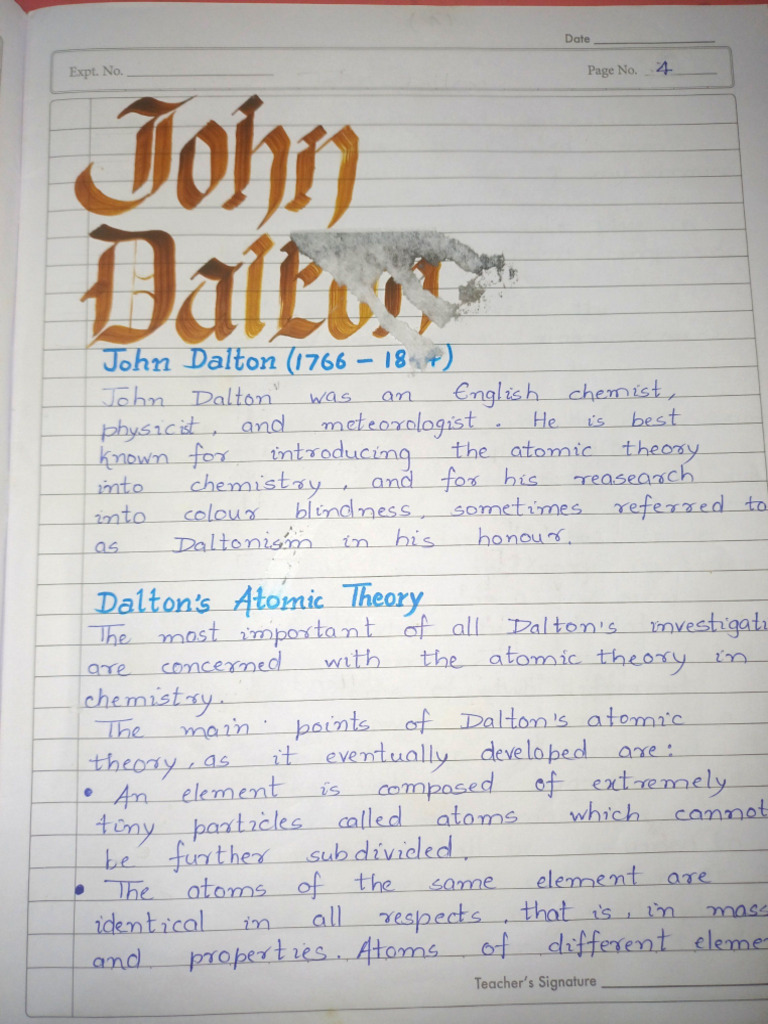 Date
Expt. No.
Page No. 4
John
Dalton
John Dalton (1766 - 18
John Dalton was an English chemist,
physicist, and meteorologist. He is best
known for introducing the atomic theory
into chemistry, and for his reasearch
into colour blindness, sometimes referred to
as Daltonism in his honour.
Dalton's Atomic Theory
The most important of all Dalton's investigati
are concerned with the atomic theory in
chemistry.
The main points of Dalton's atomic
theory, as it eventually developed are:
• An element is composed of extremely
tiny particles called atoms which cannot
be further subdivided.
• The atoms of the same element are
identical in all respects, that is, in mass
and properties. Atoms of different eleme
Teacher's Signature